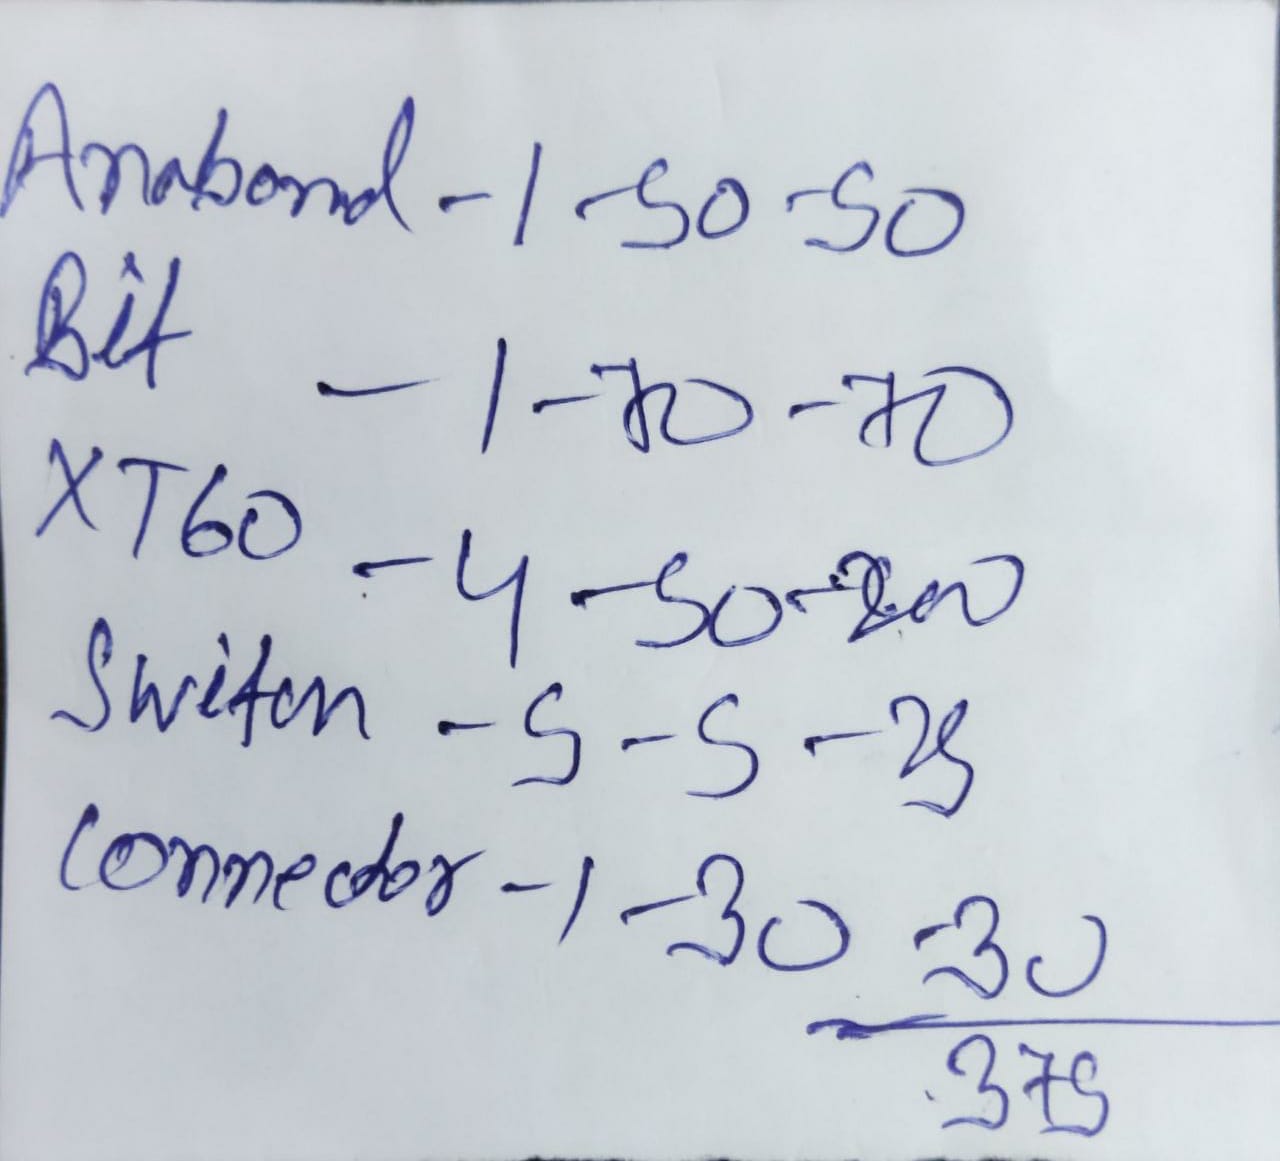 Anabond - 1 - 50 - 50
Bit - 1 - 70 - 70
XT60 - 4 - 50 - 200
Switch - 5 - 5 - 25
Connector - 1 - 30 - 30
375